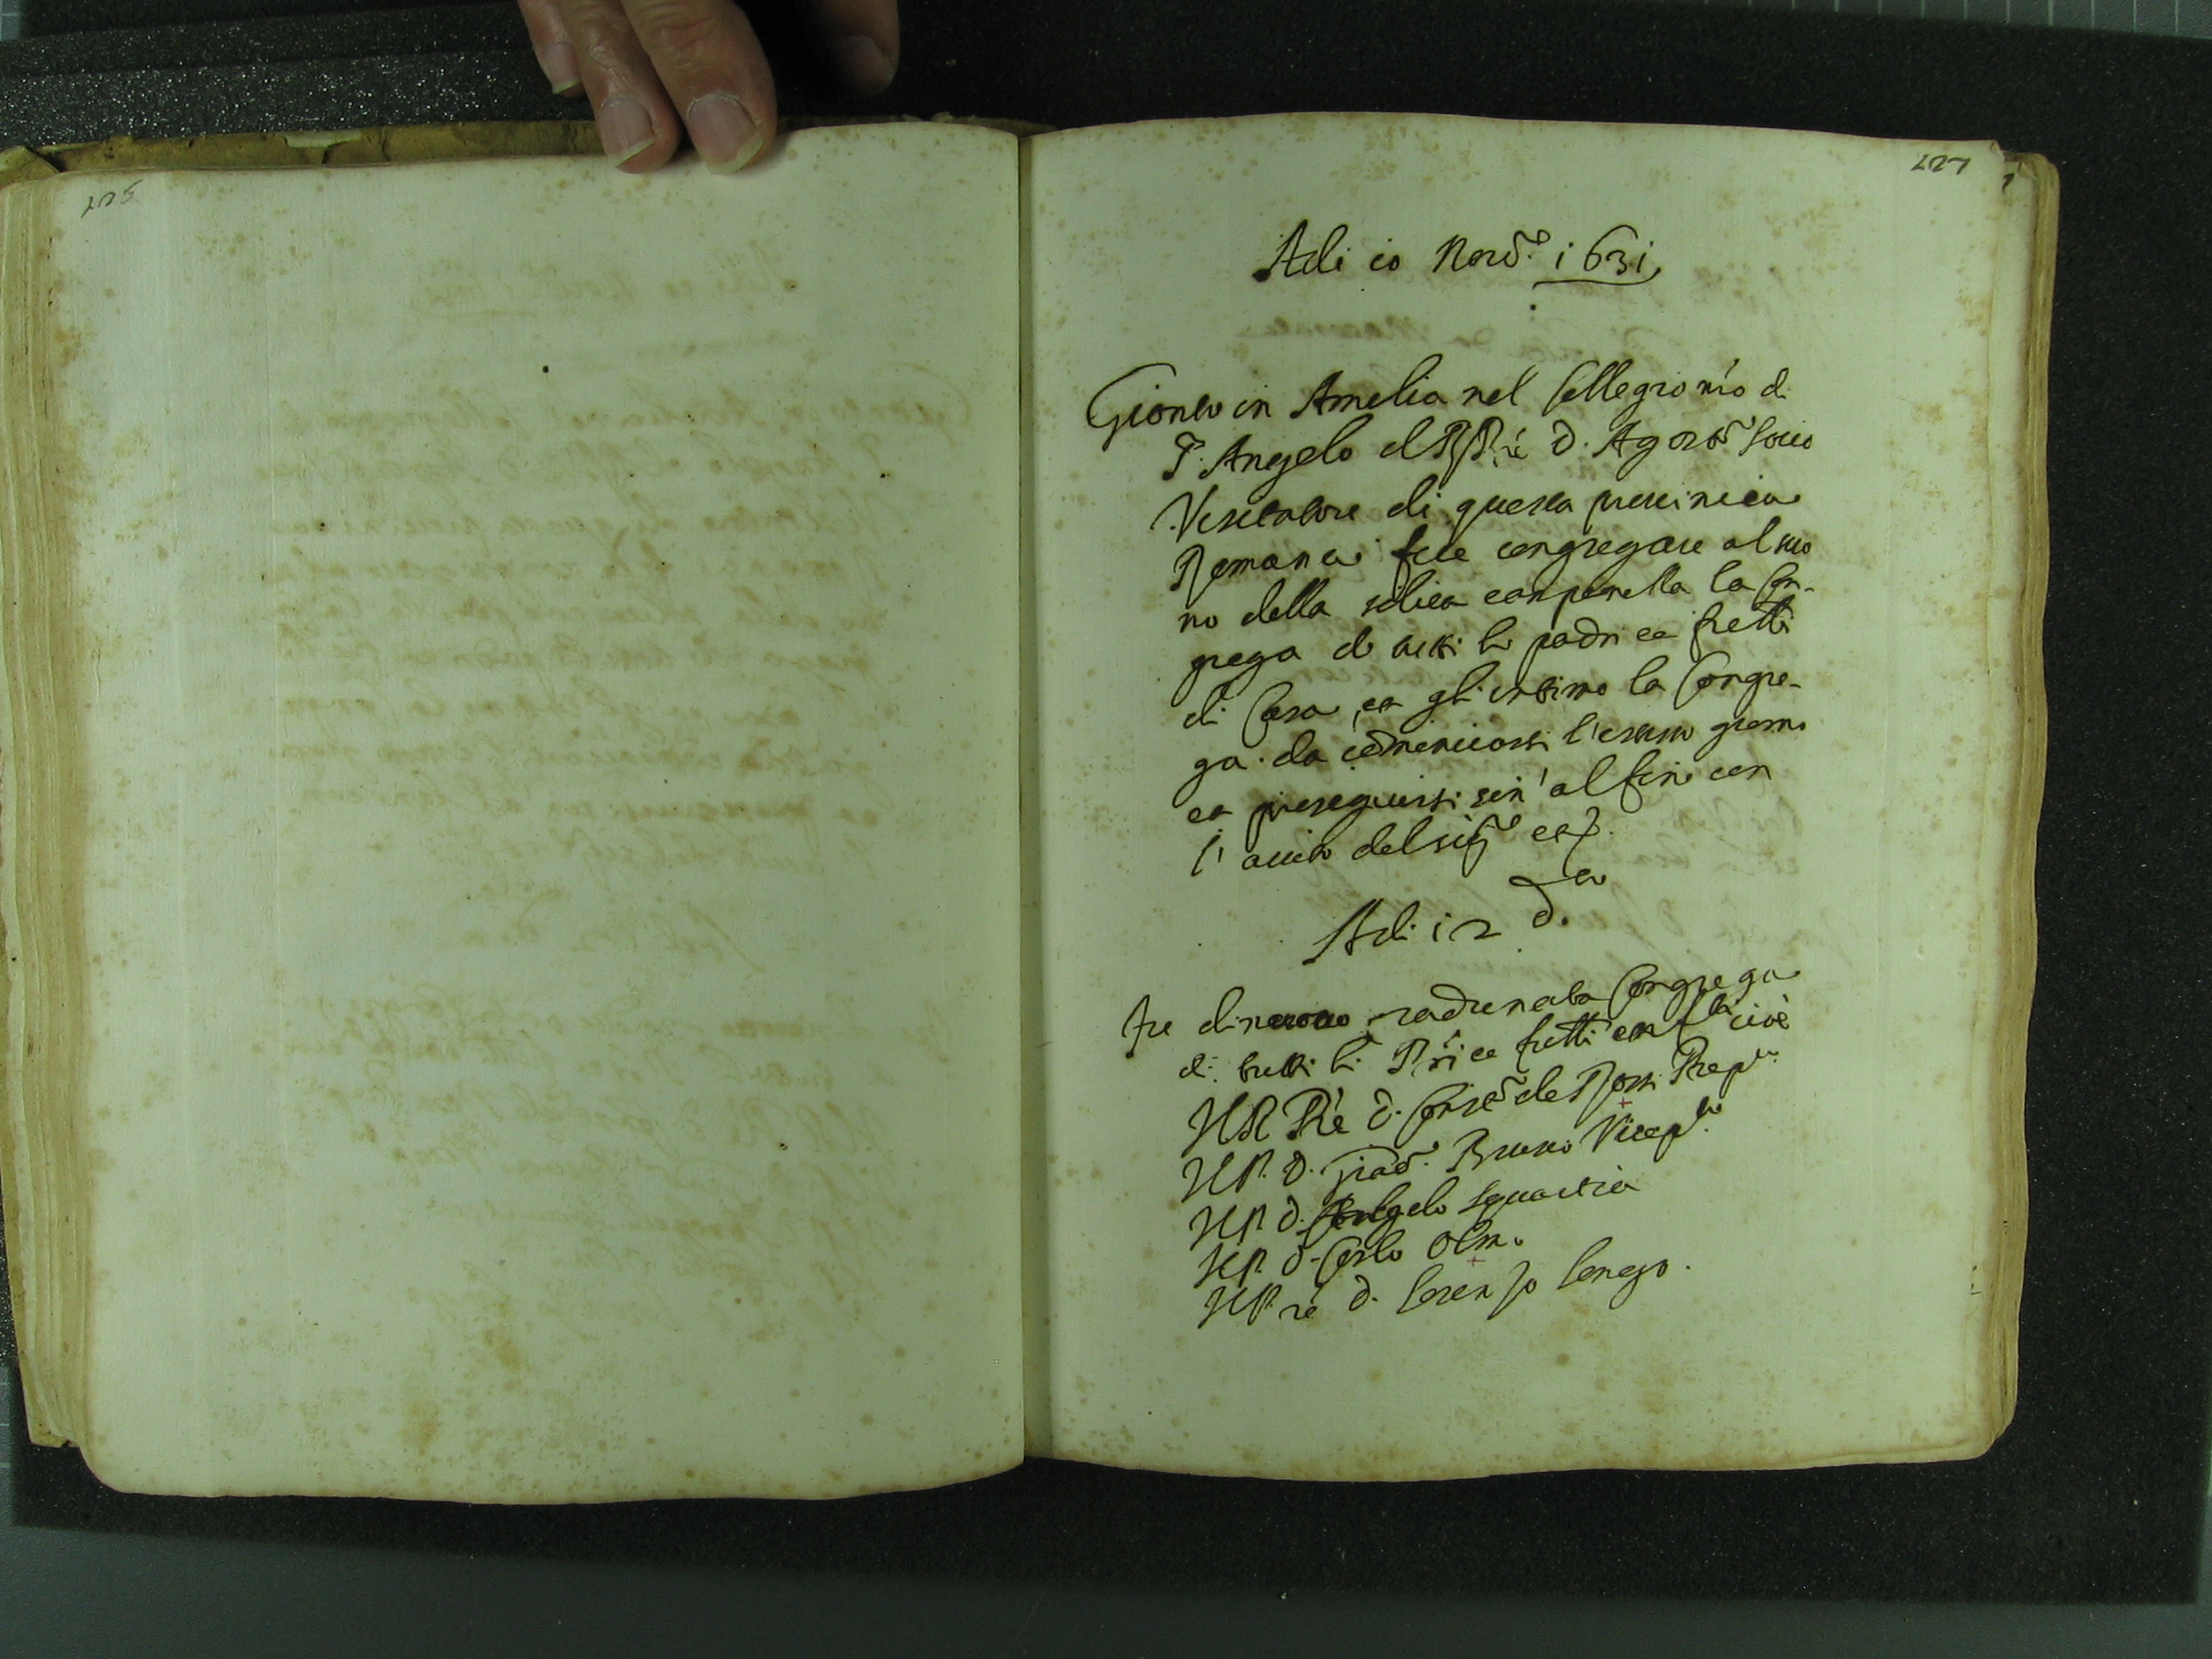 Adi io Nov.e i63i
Gionto in Amelia nel Collegio nr̃o di
S. Angelo el R. P.re D. Agos.o Socio
Visitatore di questa provincia
Romana fece congregare al suo
no della solita campanella la Con-
grega di tutti li padri et fr̃elli
di Casa, et gli intimò la Congre-
ga da cominciarsi l'istesso giorno
et proseguirsi sin' al fine con
l' aiuto del Sig.re etc.
Adi i2 d.o
fu di nuovo radunata Congrega
di tutti li P.ri et fr̃elli cioè
Il R. P.re D. de Rossi Prep.to
Il P. D. Bruno Vicep.to
Il P. D. Angelo
Il P. D. Carlo
Il P.re D. Lorenzo Longo.